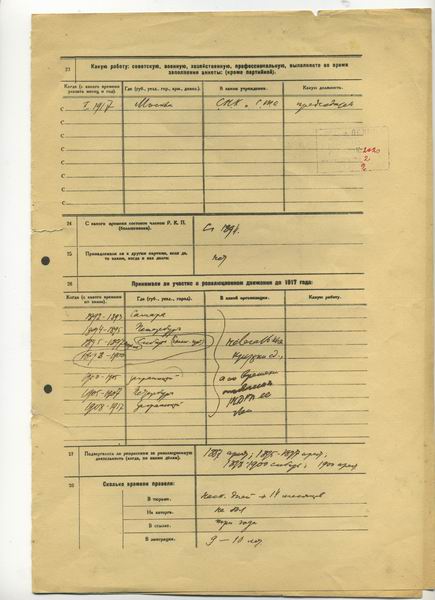 23 Какую работу: советскую, военную, хозяйственную, профессиональную, выполняете во время
заполнения анкеты: (кроме партийной).
Когда (с какого времени указать месяц и год). Где (губ., уезд., гор., арм., дивиз.). В каком учреждении. Какую должность.
С 1917 Москва СНК и СТО председатель
С
С
С
С
С
С
24 С какого времени состоите членом Р. К. П. (большевиков). С 1894.
25 Принадлежали ли к другим партиям, если да, то каким, когда и как долго: нет
26 Принимали ли участие в революционном движении до 1917 года:
Когда (с какого времени по какое). Где (губ., уезд, город). В какой организации. Какую работу.
1892-1893 Самара
1894-1895 Петербург
1895-1897 Сибирь
1898-1900
заграницей
1905-1907 Петербург
1908-1917 заграницей
нелегальные
кружки с.д.,
а со времени
27 Подвергались ли репрессиям за революционную деятельность (когда, по каким делам). 1887 арест; 1895-1897 арест;
1898-1900 Сибирь; 1900 арест
28 Сколько времени провели:
В тюрьме. неск. дней + 14 месяцев
На каторге. не был
В ссылке. три года
В эмиграции. 9 — 10 лет